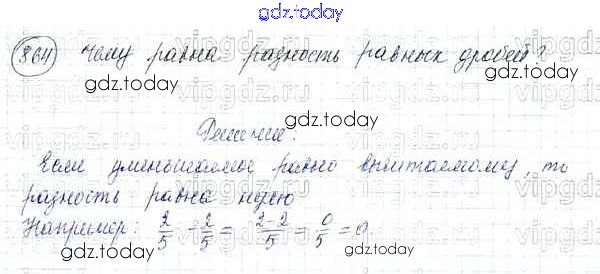 gdz.today
864 Чему равна разность равных дробей?
gdz.today
gdz.today
Решение:
Если уменьшаемое равно вычитаемому, то
разность равна нулю
gdz.today
Например: 2/5 - 2/5 = 2-2/5 = 0/5 = 0.
gdz.today